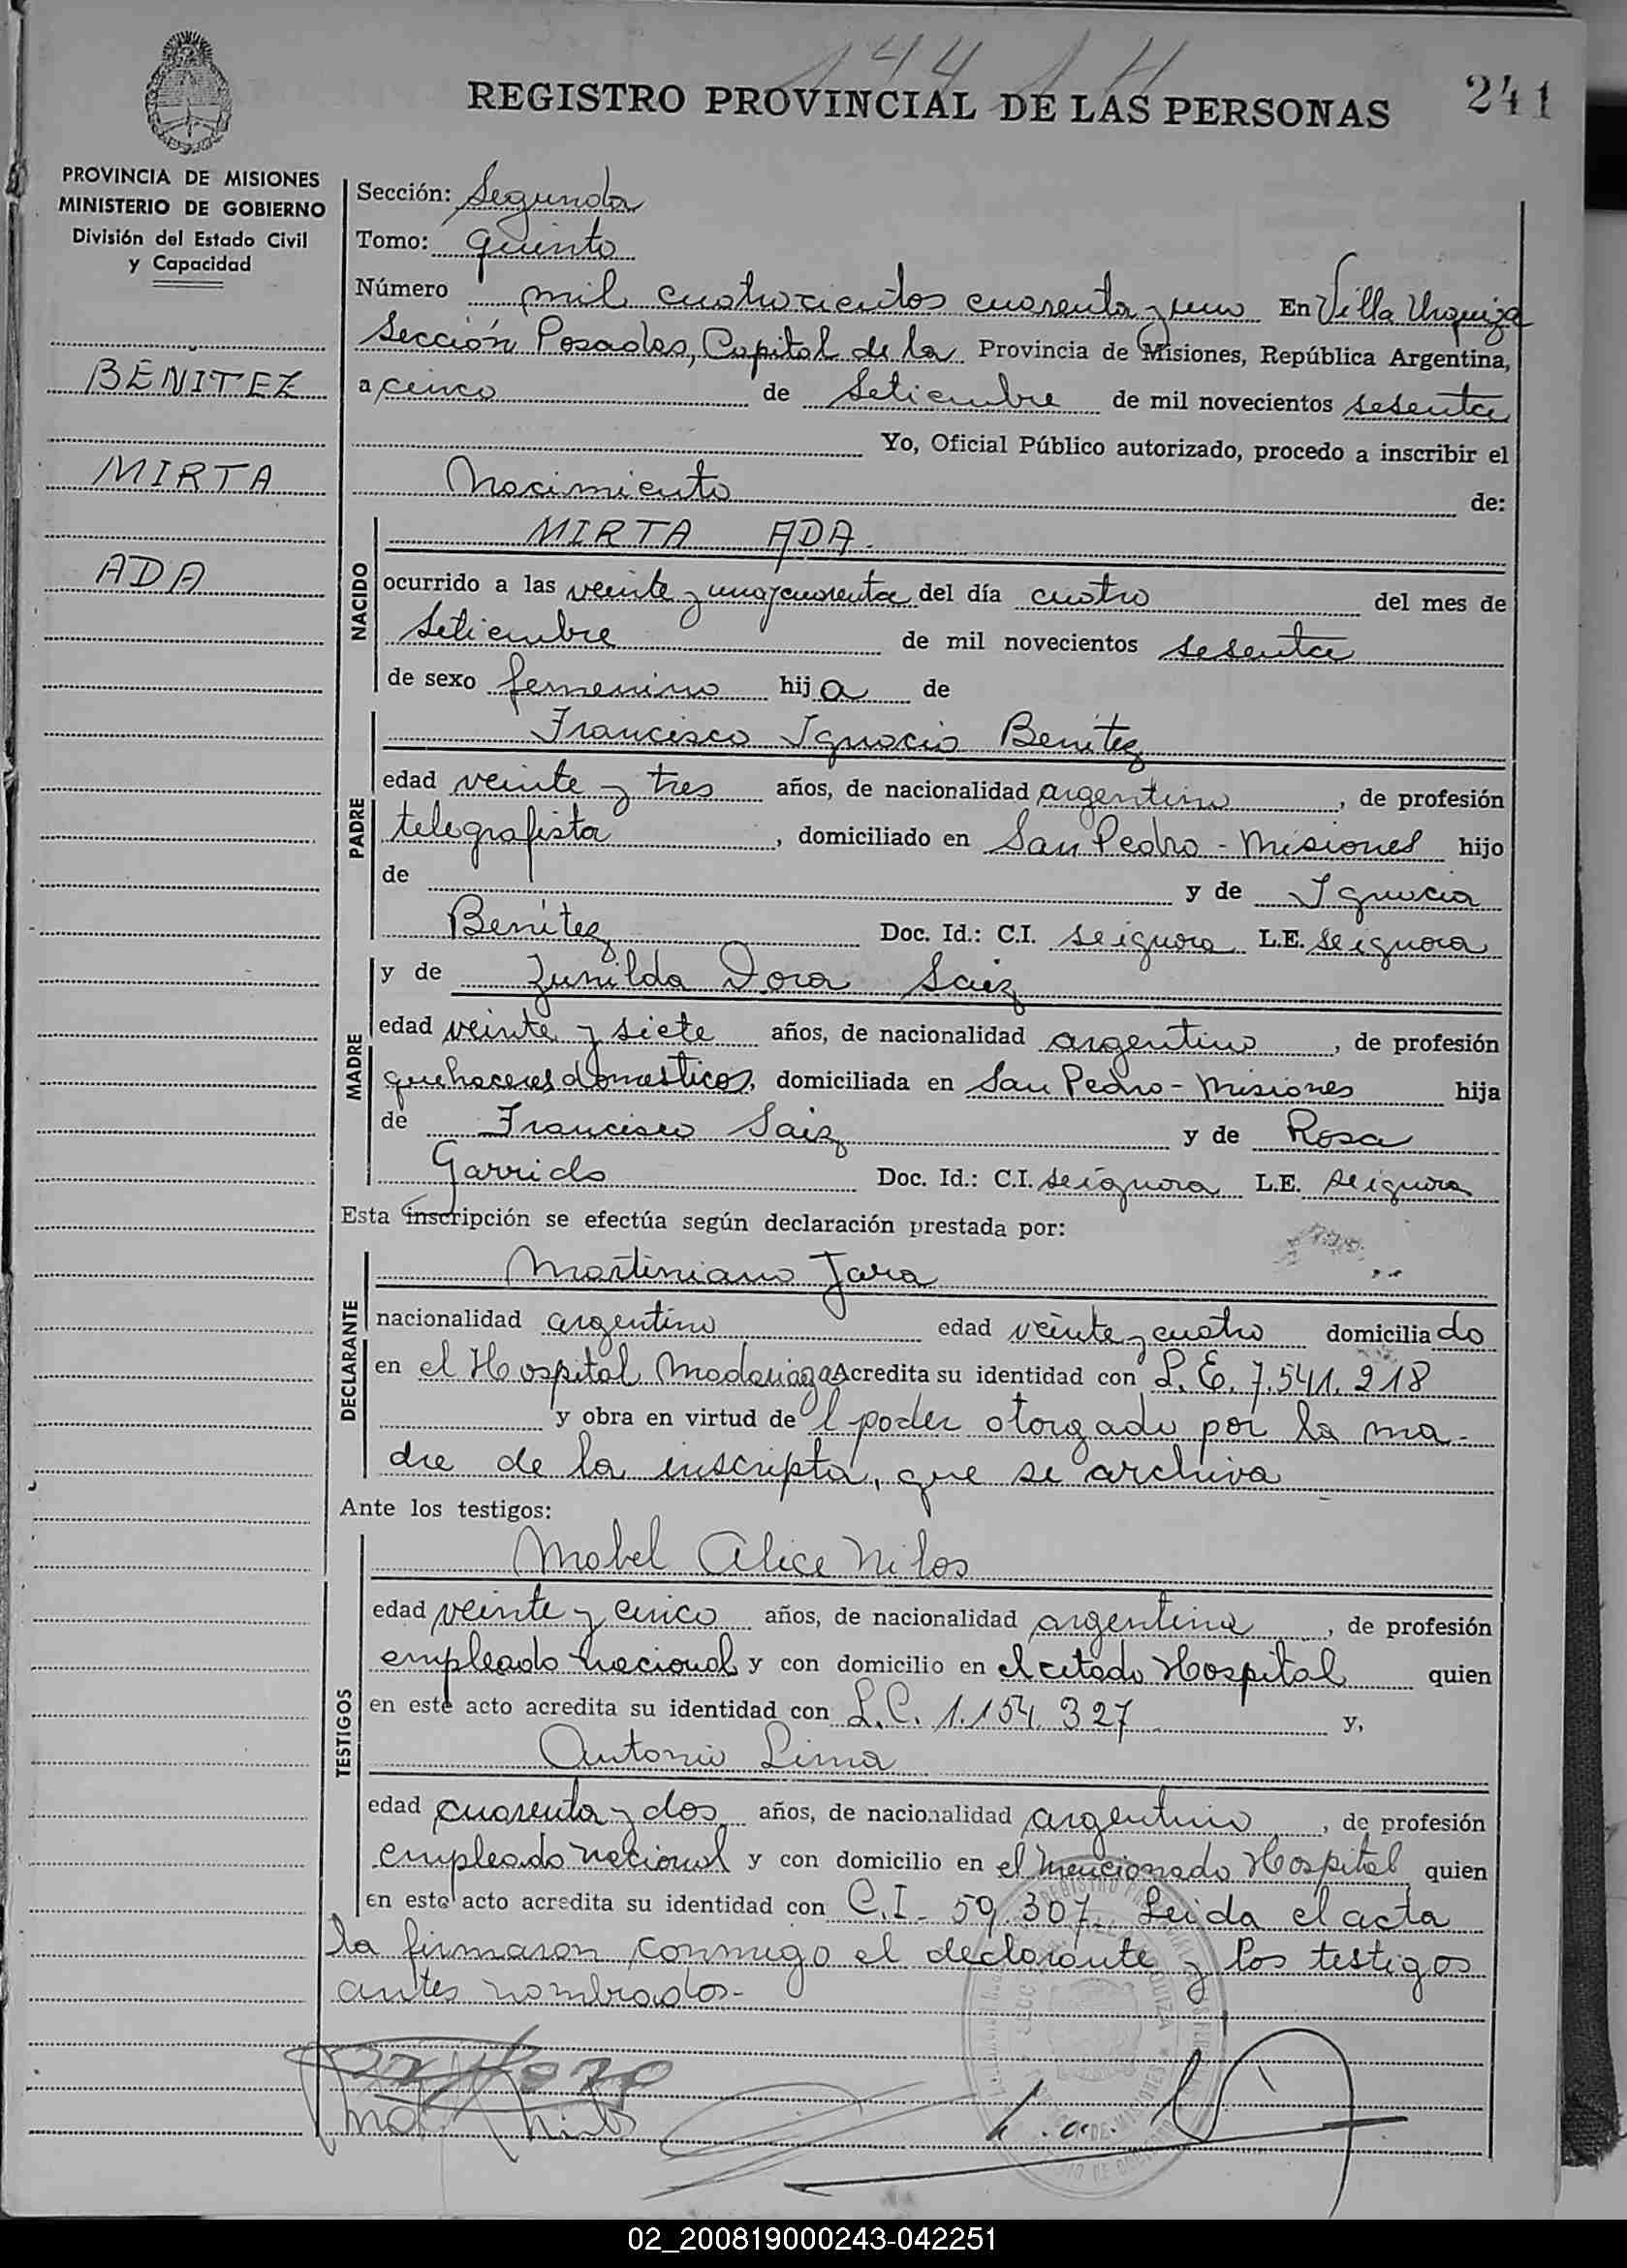 144 1 H
REGISTRO PROVINCIAL DE LAS PERSONAS 241
PROVINCIA DE MISIONES
MINISTERIO DE GOBIERNO
División del Estado Civil
y Capacidad
BENITEZ
MIRTA
ADA
Sección: Segunda
Tomo: quinto
Número mil cuatrocientos cuarenta y uno En Villa Urquiza
Sección Posadas, Capital de la Provincia de Misiones, República Argentina,
a cinco de Setiembre de mil novecientos sesenta
Yo, Oficial Público autorizado, procedo a inscribir el
Nacimiento de:
NACIDO
MIRTA ADA.
ocurrido a las veinte y una y cuarenta del día cuatro del mes de
Setiembre de mil novecientos sesenta
de sexo femenino hija de
PADRE
Francisco Ignacio Benítez
edad veinte y tres años, de nacionalidad argentino, de profesión
telegrafista, domiciliado en San Pedro - Misiones hijo
de y de Ignacia
Benítez Doc. Id.: C.I. se ignora L.E. se ignora
MADRE
y de Zunilda Dora Saiz
edad veinte y siete años, de nacionalidad argentino, de profesión
quehaceres domesticos, domiciliada en San Pedro - Misiones hija
de Francisco Saiz y de Rosa
Garrido Doc. Id.: C.I. se ignora L.E. se ignora
Esta inscripción se efectúa según declaración prestada por:
DECLARANTE
Martiniano Jara
nacionalidad argentino edad veinte y cuatro domiciliado
en el Hospital Madariaga Acredita su identidad con L.E. 7.541.218
y obra en virtud del poder otorgado por la ma-
dre de la inscripta, que se archiva
Ante los testigos:
TESTIGOS
Mabel Alice Nilos
edad veinte y cinco años, de nacionalidad argentina, de profesión
empleada nacional y con domicilio en el citado Hospital quien
en este acto acredita su identidad con L.C. 1.154.327 y,
Antonio Lima
edad cuarenta y dos años, de nacionalidad argentino, de profesión
empleado nacional y con domicilio en el mencionado Hospital quien
en este acto acredita su identidad con C.I. 59.307. Leida el acta
la firmaron conmigo el declarante y los testigos
antes nombrados.-
02_200819000243-042251